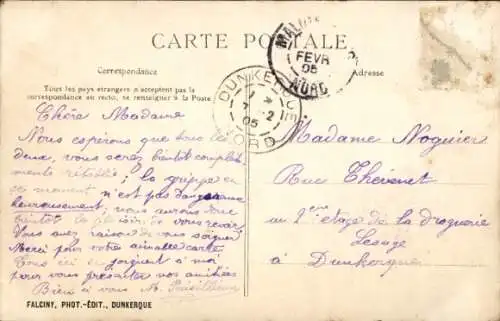 CARTE POSTALE
Correspondance
Adresse
Tous les pays étrangers n'acceptent pas la
correspondance au recto, se renseigner à la Poste
MALO
FEVR
05
NORD
DUNKERQUE
7 - 2
05
NORD
Chère Madame
Nous espérons que tous les
deux, vous serez bientôt complete-
ments rétablis; la grippe en
ce moment n'est pas dangereuse
heureusement, nous aurons donc
bientôt le plaisir de vous revoir
Vous avez raison de vous soigner
Merci pour votre aimable carte
Tous ici se joignent à moi
pour vous présenter nos amitiés
Bien à vous M.
Madame Noguier
Rue Thévenet
au 2ème étage de la droguerie
Lesage
à Dunkerque
FALCINY, PHOT.-ÉDIT., DUNKERQUE